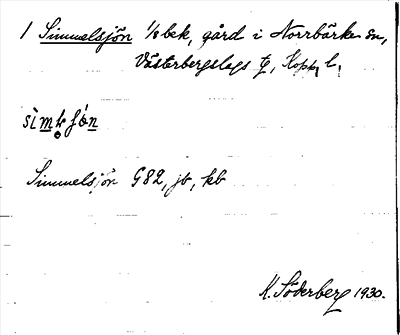 1 Simmelsjön 1/8 bek, gård i Norrbärke sn,
Västerbergslags tg, Kopp. l.
Simmelsjön G82, jb, kb
K. Söderberg 1930.